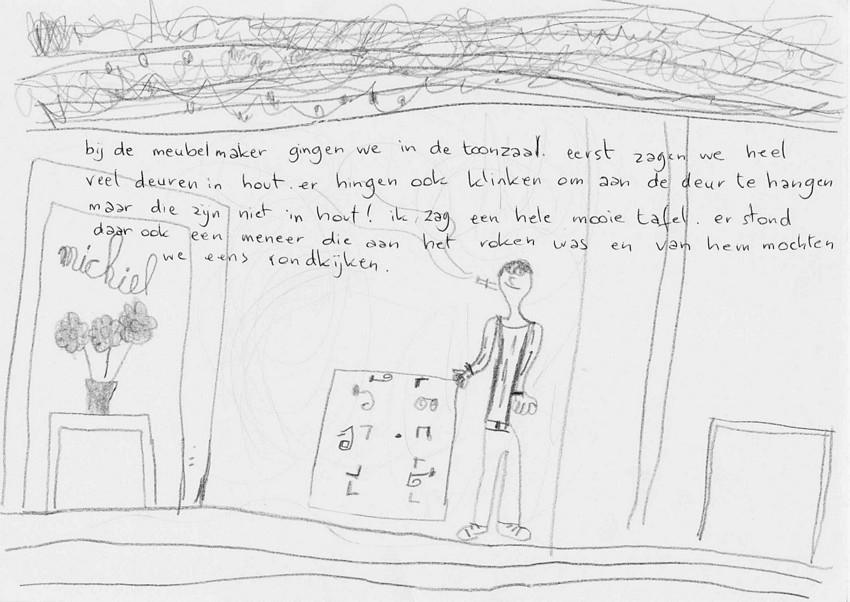 bij de meubelmaker gingen we in de toonzaal. eerst zagen we heel
veel deuren in hout. er hingen ook klinken om aan de deur te hangen
maar die zijn niet in hout! ik zag een hele mooie tafel. er stond
daar ook een meneer die aan het roken was en van hem mochten
we eens rondkijken.
michiel